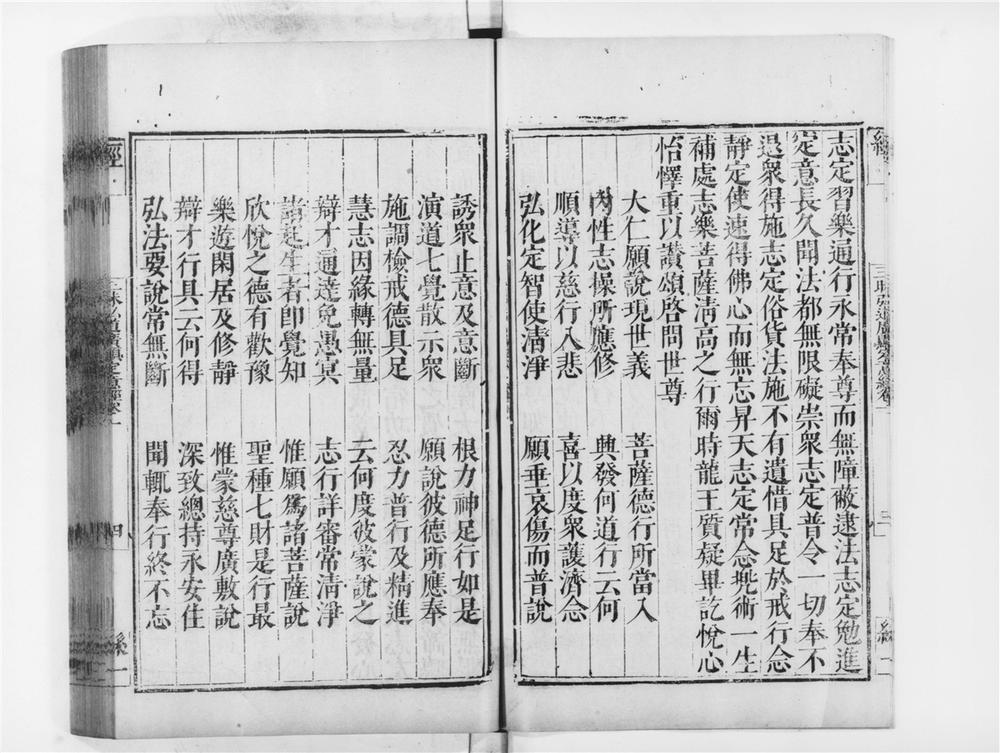 志定習樂通行永常奉尊而無障蔽逮法志定勉進
定意長久聞法都無限礙崇衆志定普令一切奉不
退衆得施志定俗貨法施不有遺惜具足於戒行念
靜定使速得佛心而無忘昇天志定常念兠術一生
補處志樂菩薩清高之行爾時龍王質疑畢訖悅心
怡懌重以讃頌啓問世尊
大仁願說現世義 菩薩德行所當入
內性志操所應修 興發何道行云何
順導以慈行入悲 喜以度衆護濟念
弘化定智使清淨 願垂哀傷而普說
誘衆止意及意斷 根力神足行如是
演道七覺散示衆 願說彼德所應奉
施調檢戒德具足 忍力普行及精進
慧志因緣轉無量 云何度彼蒙說之
辯才通達免愚冥 志行詳審常清淨
諸赴生者即覺知 惟願爲諸菩薩說
欣悅之德有歡豫 聖種七財是行最
樂遊閑居及修靜 惟蒙慈尊廣敷說
辯才行具云何得 深致總持永安住
弘法要說常無斷 聞輒奉行終不忘
經
四